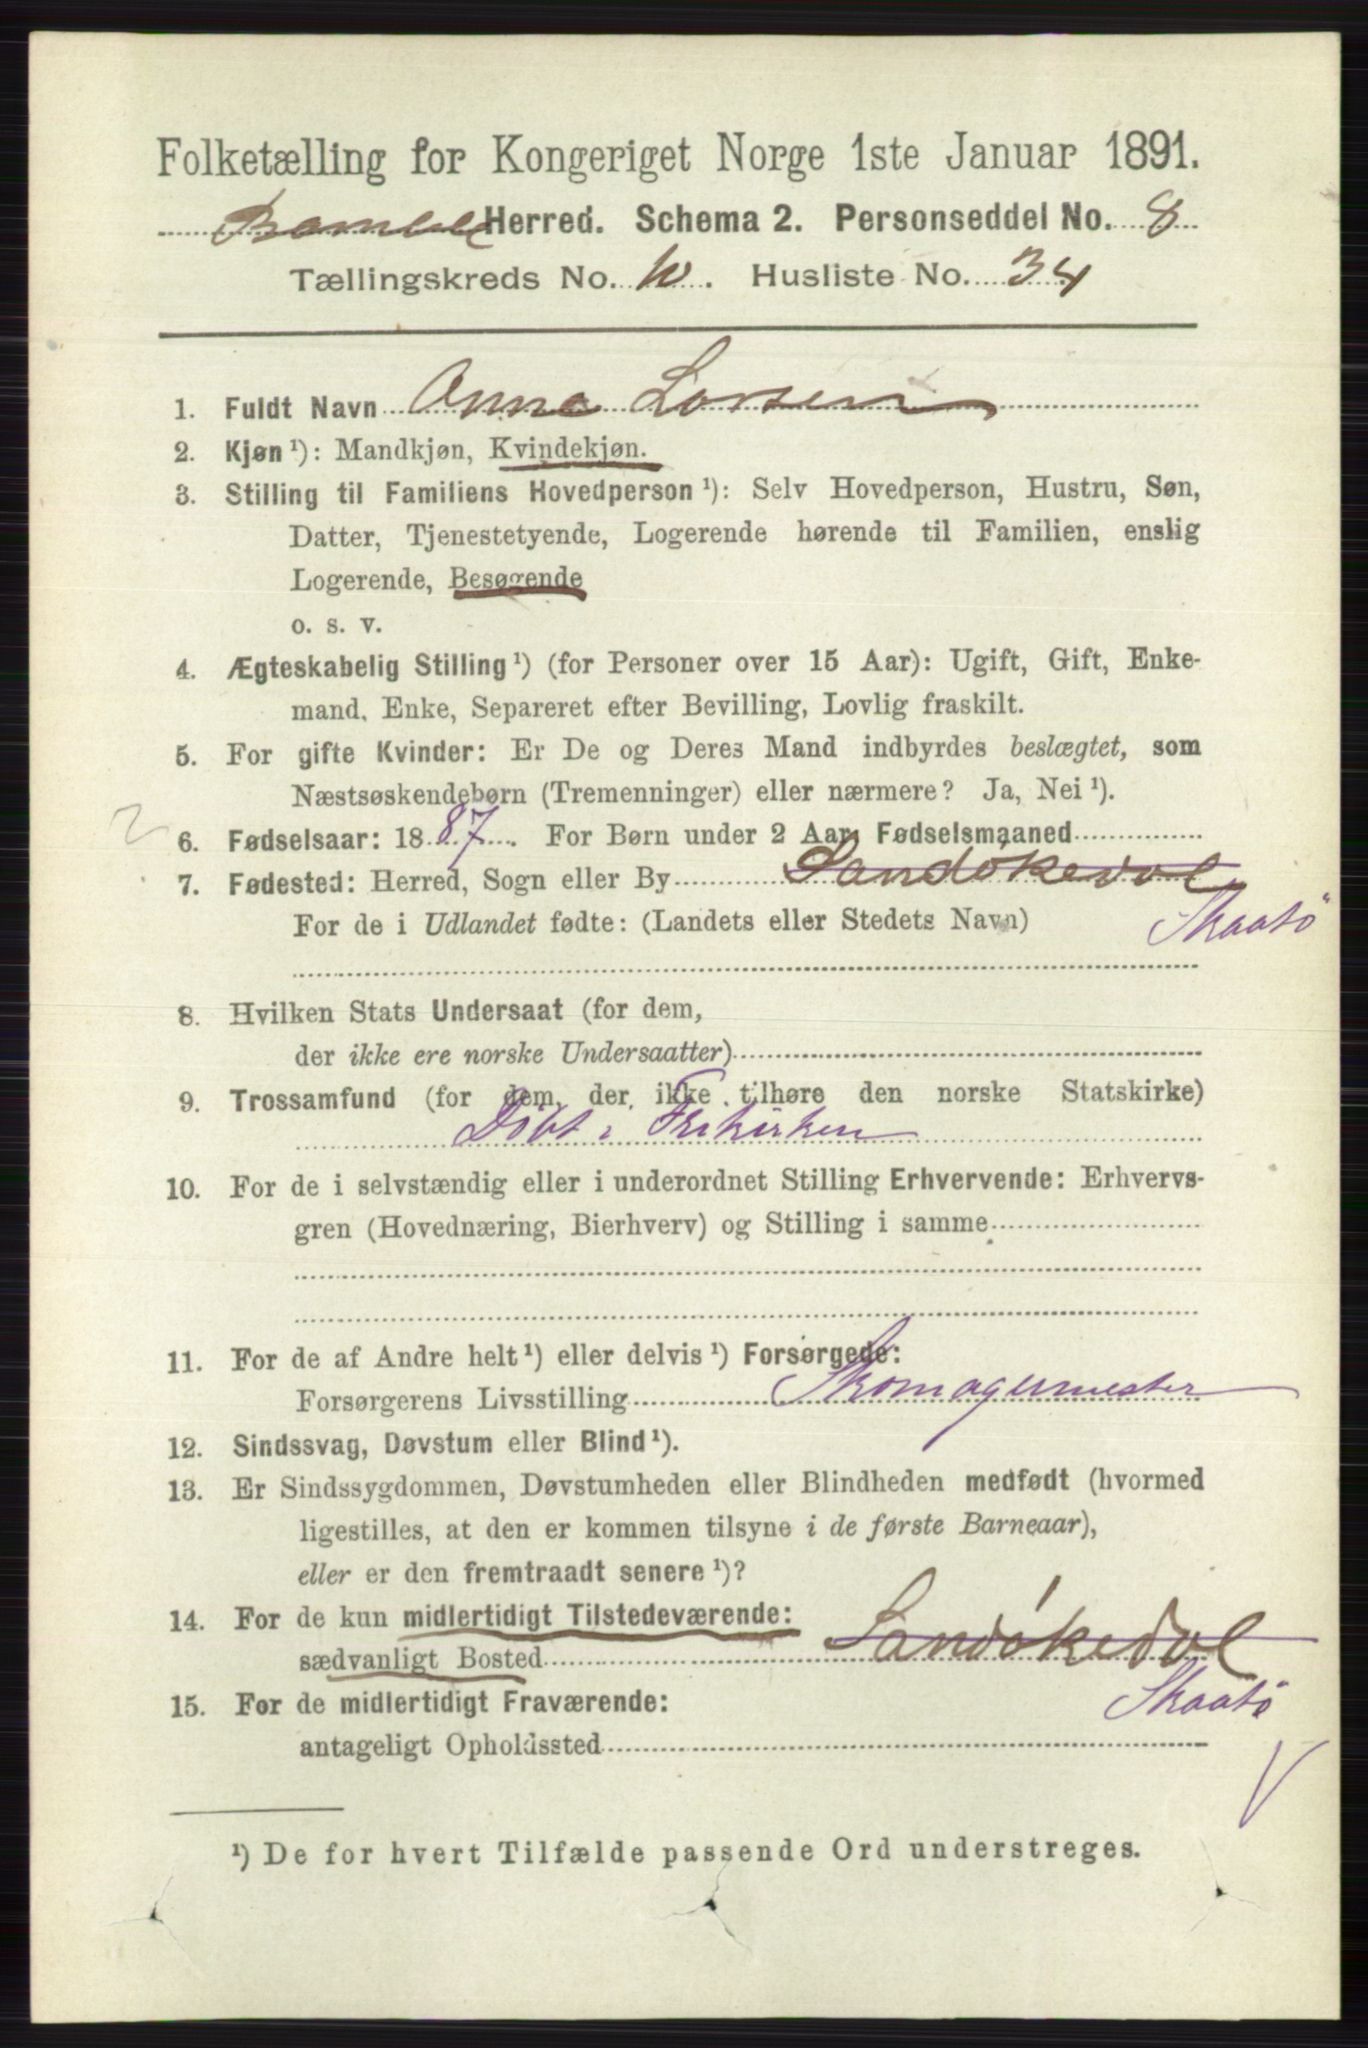 Folketælling for Kongeriget Norge 1ste Januar 1891.
Bamble Herred. Schema 2. Personseddel No. 8
Tællingskreds No. 10. Husliste No. 34
1. Fuldt Navn Anna Larsen
2. Kjøn ¹): Mandkjøn, Kvindekjøn.
3. Stilling til Familiens Hovedperson ¹): Selv Hovedperson, Hustru, Søn,
Datter, Tjenestetyende, Logerende hørende til Familien, enslig
Logerende, Besøgende
o. s. v.
4. Ægteskabelig Stilling ¹) (for Personer over 15 Aar): Ugift, Gift, Enke-
mand, Enke, Separeret efter Bevilling, Lovlig fraskilt.
5. For gifte Kvinder: Er De og Deres Mand indbyrdes beslægtet, som
Næstsøskendebørn (Tremenninger) eller nærmere? Ja, Nei ¹).
2
6. Fødselsaar: 1887. For Børn under 2 Aar, Fødselsmaaned
7. Fødested: Herred, Sogn eller By Sandøkedal
For de i Udlandet fødte: (Landets eller Stedets Navn) Skaatö
8. Hvilken Stats Undersaat (for dem,
der ikke ere norske Undersaatter)
9. Trossamfund (for dem, der ikke tilhøre den norske Statskirke)
Döbt i Frikirken
10. For de i selvstændig eller i underordnet Stilling Erhvervende: Erhvervs-
gren (Hovednæring, Bierhverv) og Stilling i samme
11. For de af Andre helt ¹) eller delvis ¹) Forsørgede:
Forsørgerens Livsstilling Skomagermester
12. Sindssvag, Døvstum eller Blind ¹).
13. Er Sindssygdommen, Døvstumheden eller Blindheden medfødt (hvormed
ligestilles, at den er kommen tilsyne i de første Barneaar),
eller er den fremtraadt senere ¹)?
14. For de kun midlertidigt Tilstedeværende:
sædvanligt Bosted Sandøkedal
Skaatö
15. For de midlertidigt Fraværende:
antageligt Opholdssted
¹) De for hvert Tilfælde passende Ord understreges.